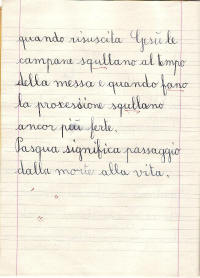 quando risuscita Gesù le
campane squllano al tempo
della messa e quando fano
la prozessione squllano
ancor più forte.
Pasqua significa passaggio
dalla morte alla vita.